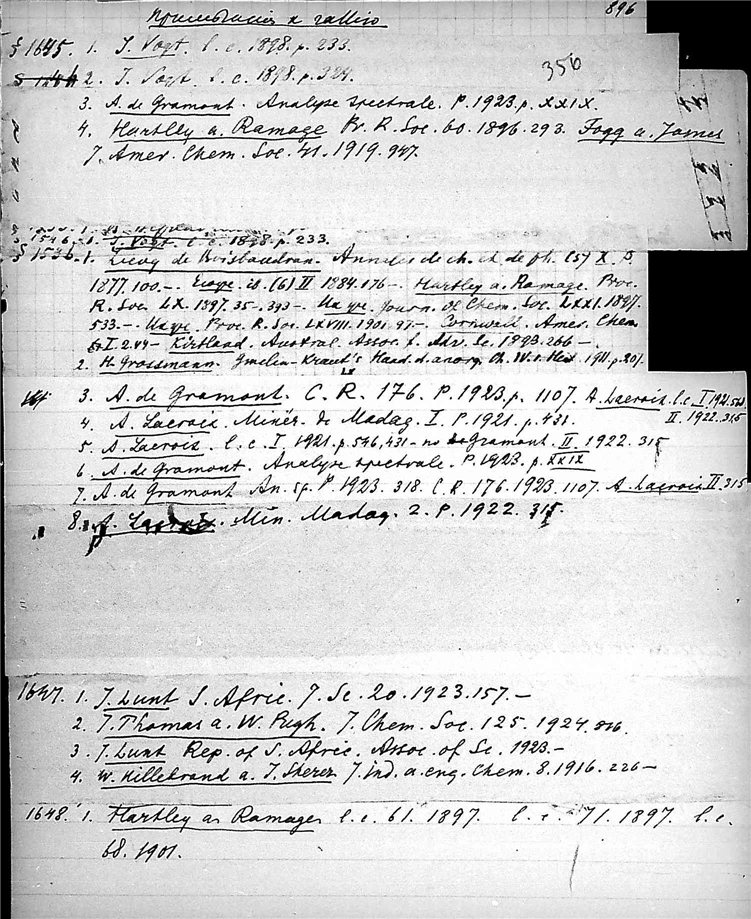 896
Примечания к галлию
§ 1645. 1. J. Vogt. l. c. 1898. p. 233.
350
2. J. Vogt. l. c. 1898. p. 324.
3. A. de Gramont. Analyse spectrale. P. 1923. p. XXIX.
4. Hartley a. Ramage Pr. R. Soc. 60. 1896. 293. Fogg a. James
J. Amer. Chem. Soc. 41. 1919. 947.
1546. 1. J. Vogt. l. c. 1898. p. 233.
§ 1536. 1. Lecoq de Boisbaudran. Annales de ch. et de ph. (5) X. P.
1877. 100.– Ejusd. ib. (6) II 1884. 176 – Hartley a. Ramage. Proc.
R. Soc. LX. 1897. 35–393 – Journ. of Chem. Soc. LXXI. 1897.
533. – Proc. R. Soc. LXVIII. 1901. 97 –. Cornwall. Amer. Chem.
I. 244 – Kirkland. Austral. Assoc. f. Adv. Sc. 1893. 266 –
2. H. Grossmann. Gmelin-Kraut's Hand. d. anorg. Ch. VI. 1. Heid. 1911. p. 201.
3. A. de Gramont. C. R. 176. P. 1923. p. 1107. A. Lacroix. l. c. I
4. A. Lacroix. Minér. de Madag. I. P. 1921. p. 431. II. 1922. 315
5. A. Lacroix. l. c. I 1921. p. 546, 431 – по Gramont. II. 1922. 315
6. A. de Gramont. Analyse spectrale. P. 1923. p. XXIX
7. A. de Gramont An. sp. P. 1923. 318. C. R. 176. 1923. 1107. A. Lacroix II. 315
8. A. Lacroix. Min. Madag. 2. P. 1922. 315.
1647. 1. J. Lunt S. Afric. J. Sc. 20. 1923. 157. –
2. J. Thomas a. W. Pugh. J. Chem. Soc. 125. 1924. 816.
3. J. Lunt Rep. of S. Afric. Assoc. of Sc. 1923. –
4. W. Hillebrand a. J. Sherer J. ind. a. eng. Chem. 8. 1916. 226 –
1648. 1. Hartley a. Ramage l. c. 61. 1897. l. c. 71. 1897. l. c.
68. 1901.